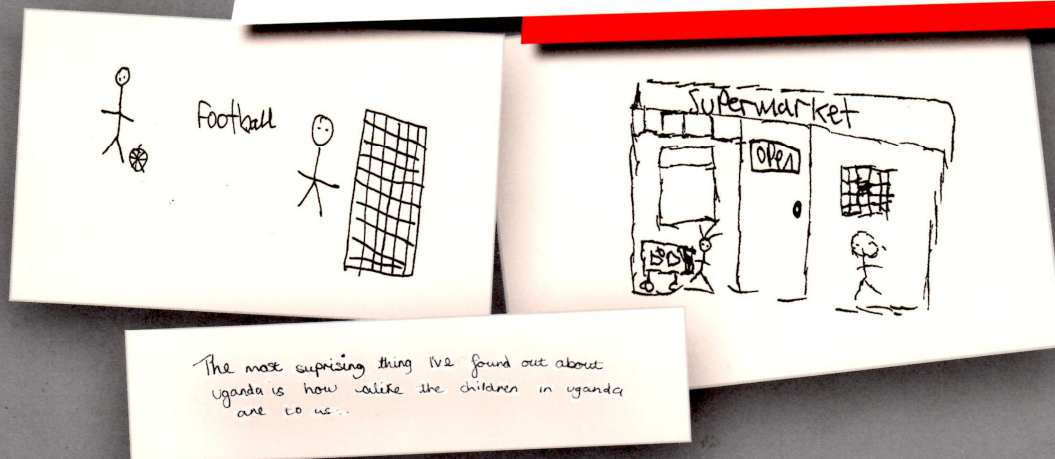 Football
Supermarket
OPEN
The most suprising thing I've found out about
uganda is how alike the children in uganda
are to us...